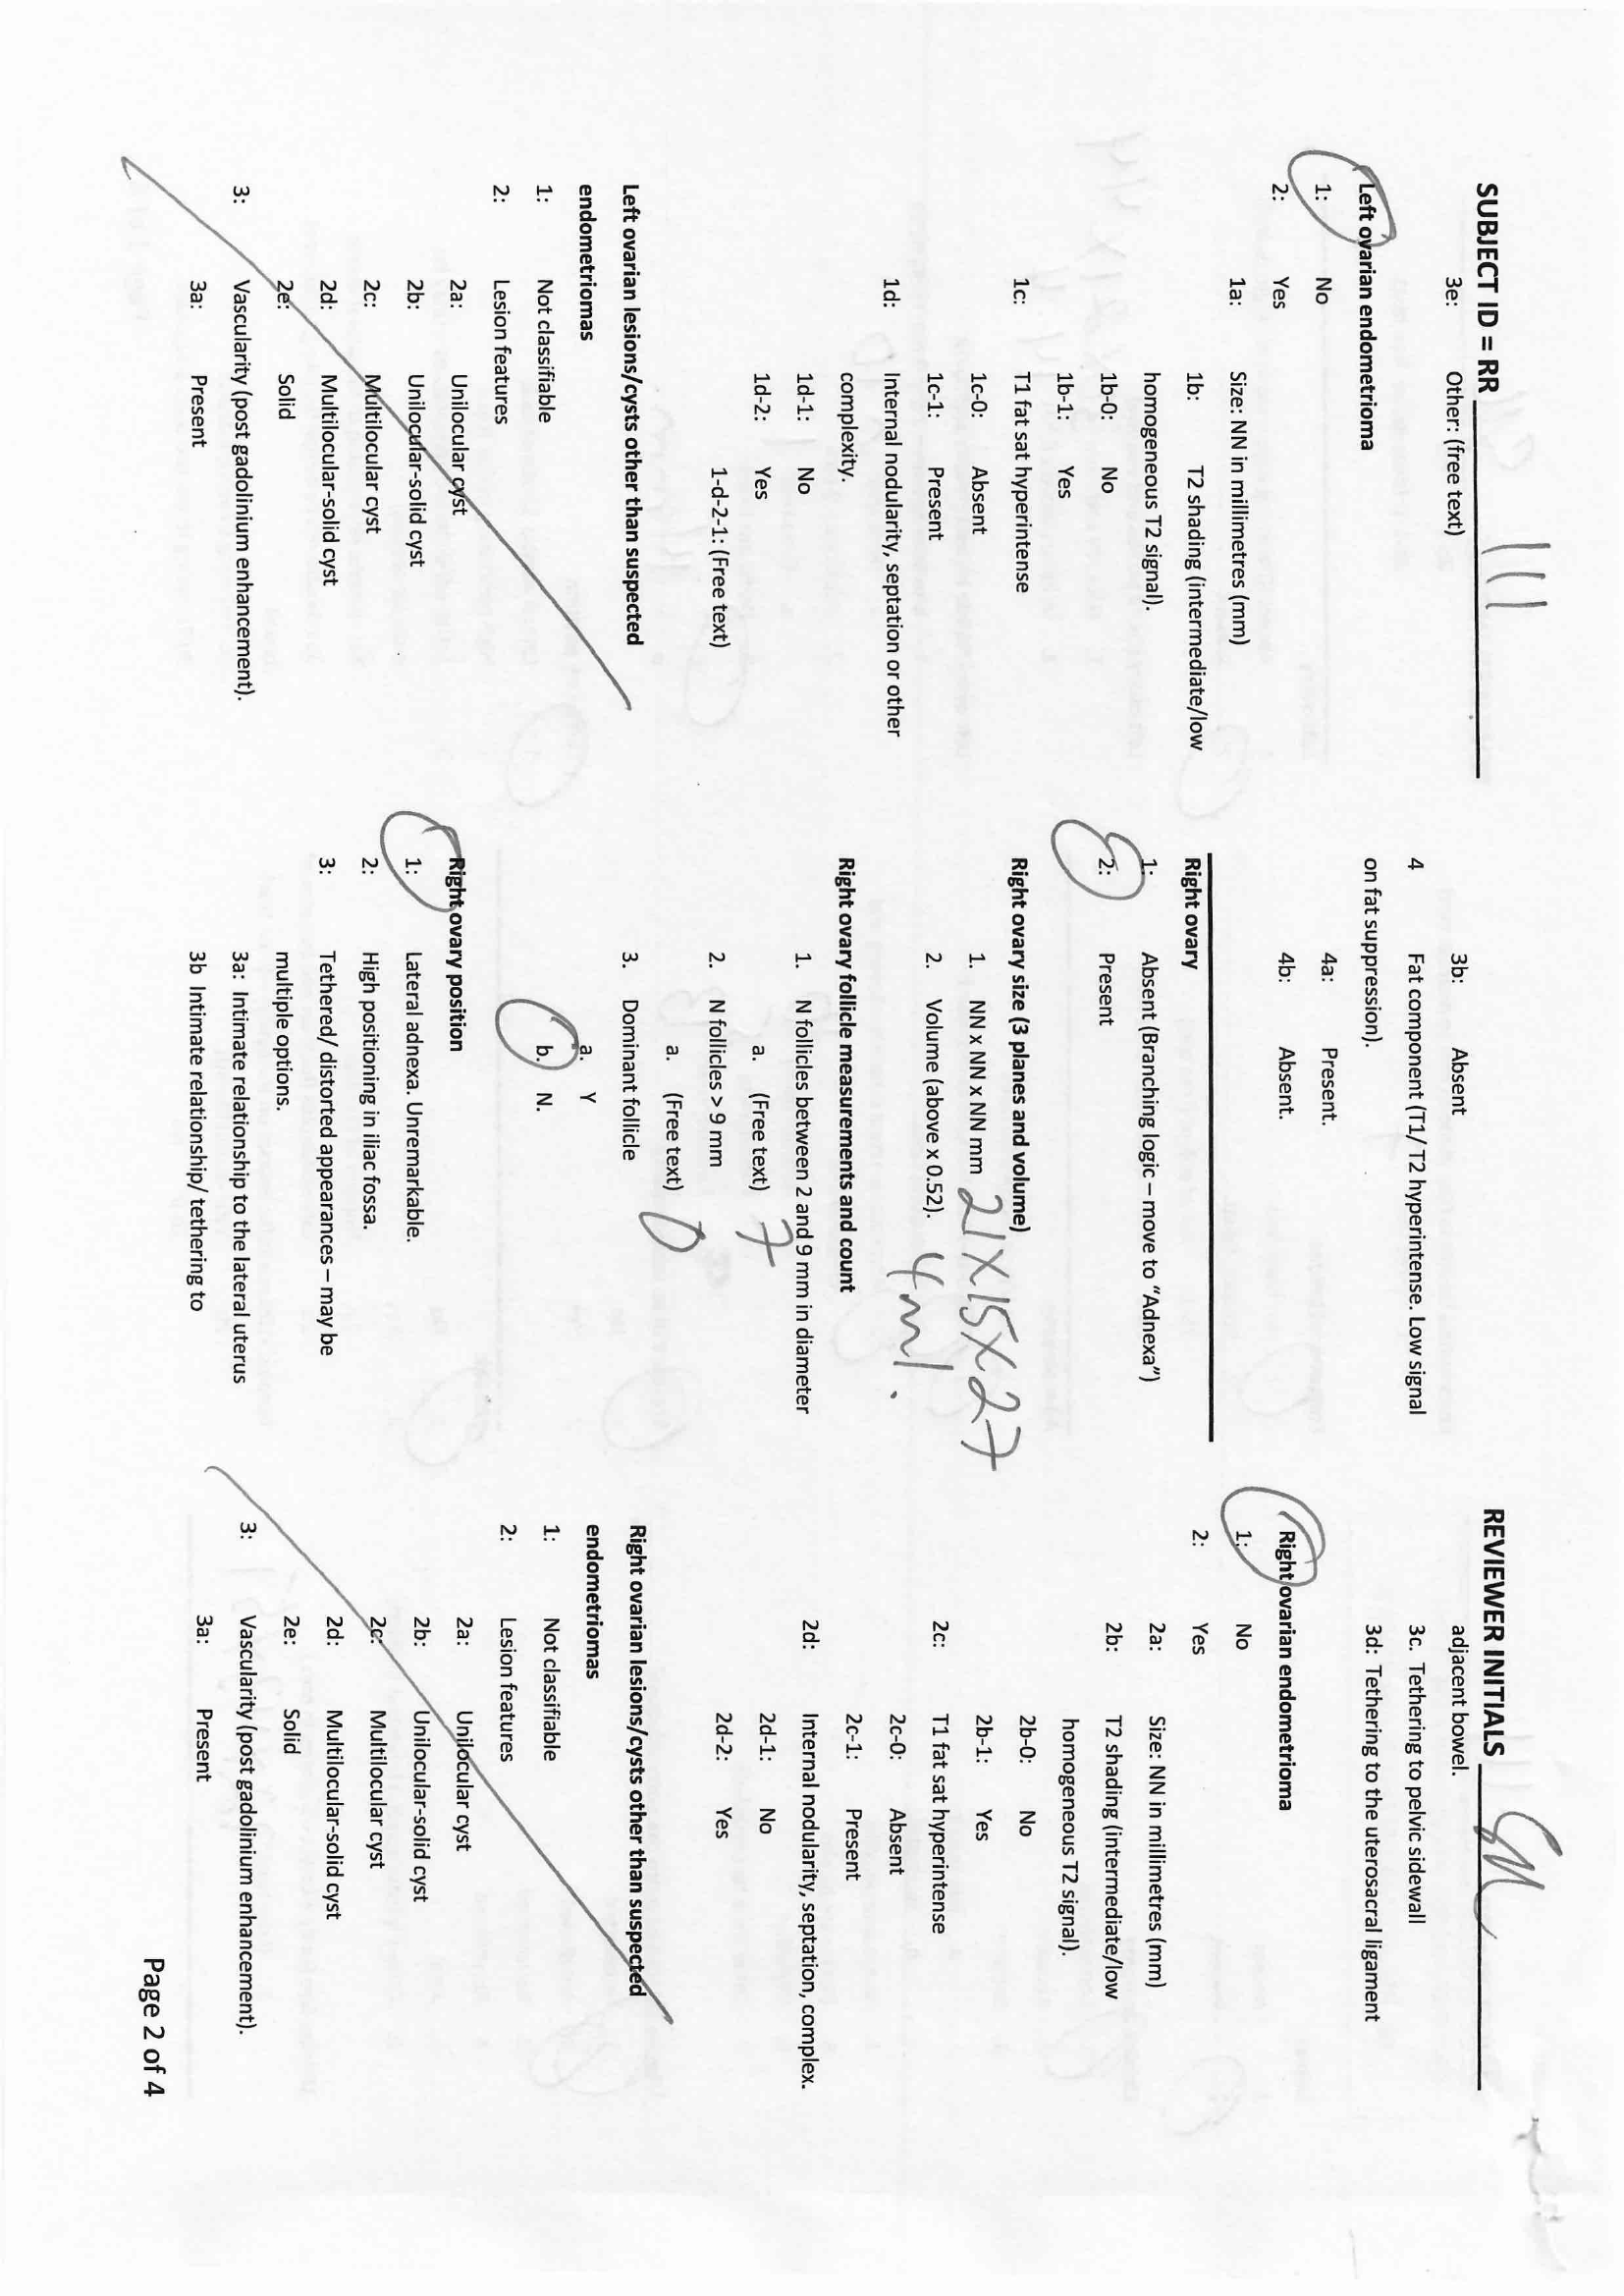 SUBJECT ID = RR 111
REVIEWER INITIALS
3e: Other: (free text)
Left ovarian endometrioma
1: No
2: Yes
1a: Size: NN in millimetres (mm)
1b: T2 shading (intermediate/low
homogeneous T2 signal).
1b-0: No
1b-1: Yes
1c: T1 fat sat hyperintense
1c-0: Absent
1c-1: Present
1d: Internal nodularity, septation or other
complexity.
1d-1: No
1d-2: Yes
1-d-2-1: (Free text)
Left ovarian lesions/cysts other than suspected
endometriomas
1: Not classifiable
2: Lesion features
2a: Unilocular cyst
2b: Unilocular-solid cyst
2c: Multilocular cyst
2d: Multilocular-solid cyst
2e: Solid
3: Vascularity (post gadolinium enhancement).
3a: Present
3b: Absent
4 Fat component (T1/ T2 hyperintense. Low signal
on fat suppression).
4a: Present.
4b: Absent.
Right ovary
1: Absent (Branching logic – move to "Adnexa")
2: Present
Right ovary size (3 planes and volume)
1. NN x NN x NN mm 21x15x27
2. Volume (above x 0.52). 4ml.
Right ovary follicle measurements and count
1. N follicles between 2 and 9 mm in diameter
a. (Free text) 7
2. N follicles > 9 mm
a. (Free text) 0
3. Dominant follicle
a. Y
b. N.
Right ovary position
1: Lateral adnexa. Unremarkable.
2: High positioning in iliac fossa.
3: Tethered/ distorted appearances – may be
multiple options.
3a: Intimate relationship to the lateral uterus
3b Intimate relationship/ tethering to
adjacent bowel.
3c. Tethering to pelvic sidewall
3d: Tethering to the uterosacral ligament
Right ovarian endometrioma
1: No
2: Yes
2a: Size: NN in millimetres (mm)
2b: T2 shading (intermediate/low
homogeneous T2 signal).
2b-0: No
2b-1: Yes
2c: T1 fat sat hyperintense
2c-0: Absent
2c-1: Present
2d: Internal nodularity, septation, complex.
2d-1: No
2d-2: Yes
Right ovarian lesions/cysts other than suspected
endometriomas
1: Not classifiable
2: Lesion features
2a: Unilocular cyst
2b: Unilocular-solid cyst
2c: Multilocular cyst
2d: Multilocular-solid cyst
2e: Solid
3: Vascularity (post gadolinium enhancement).
3a: Present
Page 2 of 4